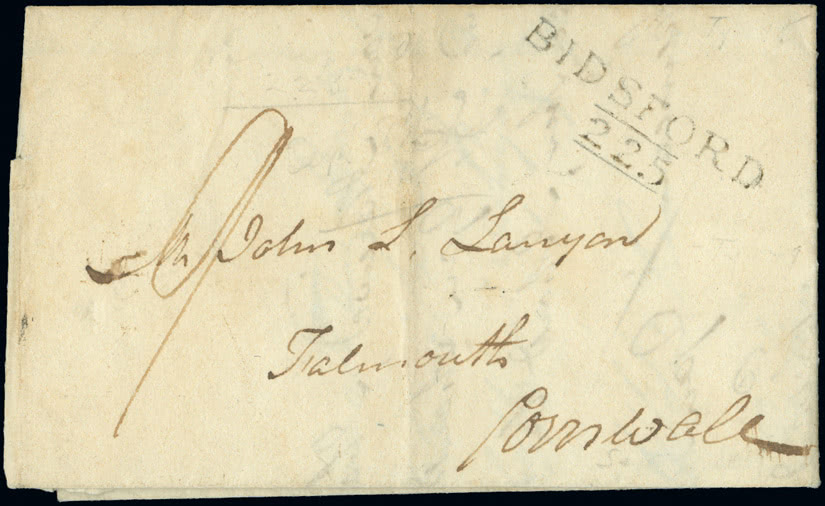 BIDSFORD
225
9
Mr John L. Lanyon
Falmouth
Cornwall